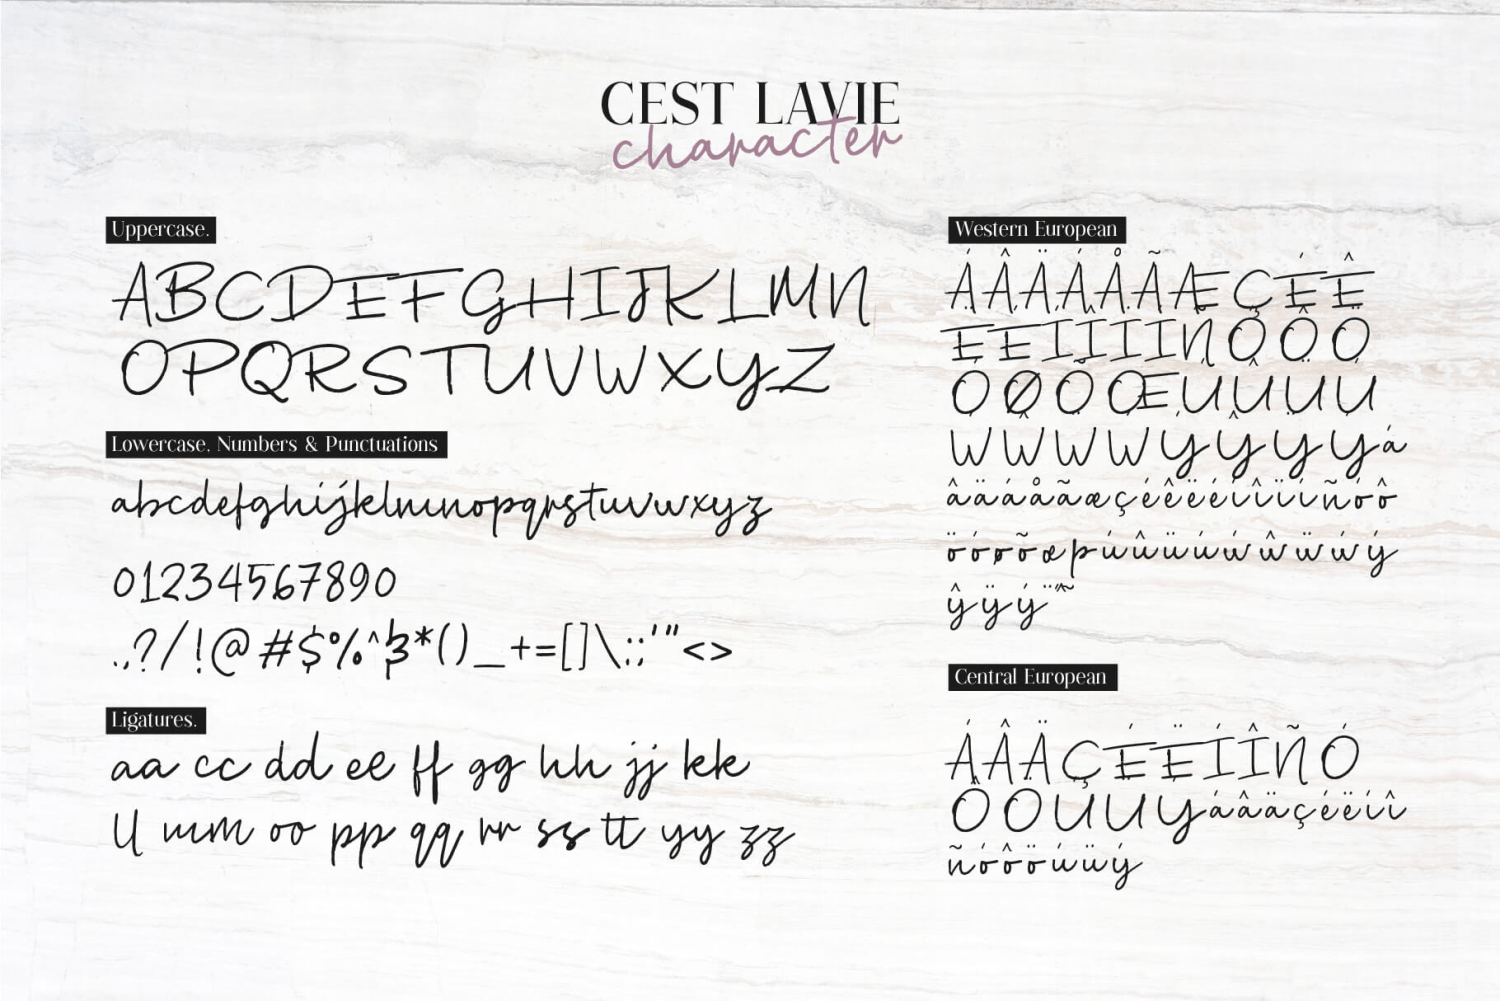 CEST LAVIE
character
Uppercase.
ABCDEFGHIJKLMN
OPQRSTUVWXYZ
Lowercase, Numbers & Punctuations
abcdefghijklmnopqrstuvwxyz
01234567890
.,?/!@#$%^&*()_+=[]\:;'"<>
Ligatures.
aa cc dd ee ff gg hh jj kk
ll mm oo pp qq rr ss tt yy zz
Western European
ÁÂÄÀÅÃÆÇÉÊ
ËÈÍÎÏÌÑÓÔÖ
ÒØÕŒÚÛÜÙ
ẂŴẄẀÝŶŸỲá
âäàåãæçéêëèíîïìñóô
öòøõœþúûüùẃŵẅẁý
ŷÿỳ
Central European
ÁÂÄÇÉËÍÎÑÓ
ÔÖÚÜÝáâäçéëíî
ñóôöúüý